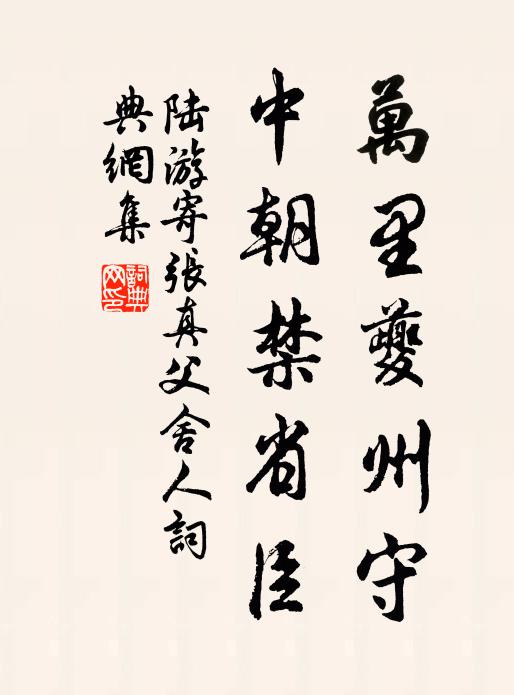 萬里夔州守
中朝禁省臣
陸游寄張真父舍人詞
典網集
詞典網印